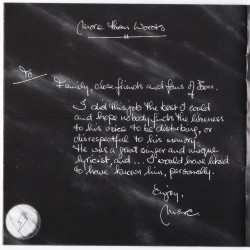 More than Words
To
Family, close friends and fans of Bon.
I did this job the best I could
and hope nobody finds the likeness
to his voice to be disturbing, or
disrespectful to his memory.
He was a great singer and unique
lyricist, and... I would have liked
to have known him, personally.
Enjoy,
Marc